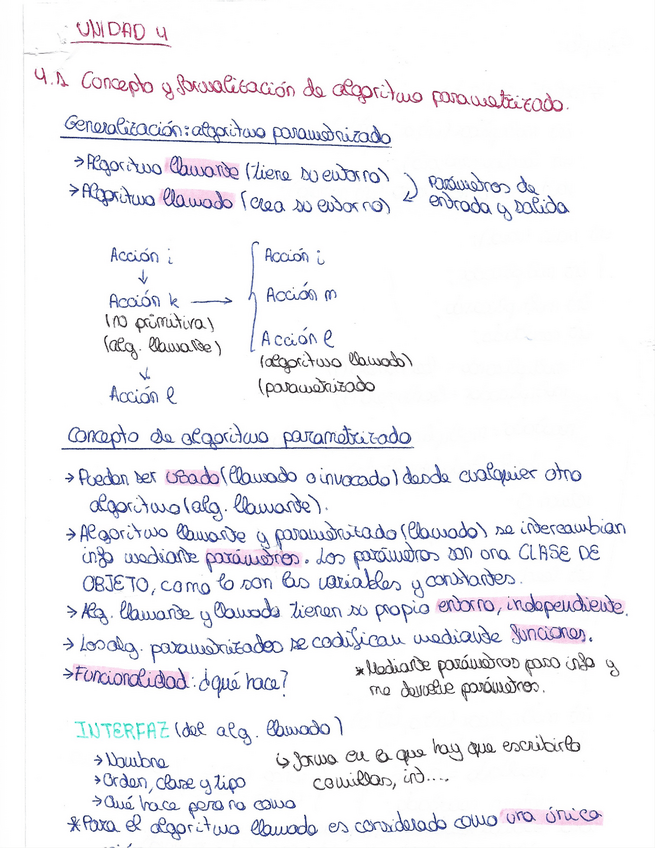 UNIDAD 4
4.1 Concepto y formalización de algoritmo parametrizado.
Generalización: algoritmo parametrizado
→ Algoritmo llamante (tiene su entorno)
→ Algoritmo llamado (crea su entorno)
parámetros de
entrada y salida
Acción i
Acción k
(no primitiva)
(alg. llamante)
Acción l
Acción i
Acción m
Acción l
(algoritmo llamado)
(parametrizado
Concepto de algoritmo parametrizado
→ Pueden ser usado (llamado o invocado) desde cualquier otro
algoritmo (alg. llamante).
→ Algoritmo llamante y parametrizado (llamado) se intercambian
info mediante parámetros. Los parámetros son una CLASE DE
OBJETO, como lo son las variables y constantes.
→ Alg. llamante y llamado tienen su propio entorno, independiente.
→ Los alg. parametrizados se codifican mediante funciones.
→ Funcionalidad: ¿qué hace?
* Mediante parámetros paso info y
me devuelve parámetros.
INTERFAZ (del alg. llamado)
→ Nombre
→ Orden, clase y tipo
→ Qué hace pero no como
↳ forma en la que hay que escribirlo
comillas, int....
* Para el algoritmo llamado es considerado como una única